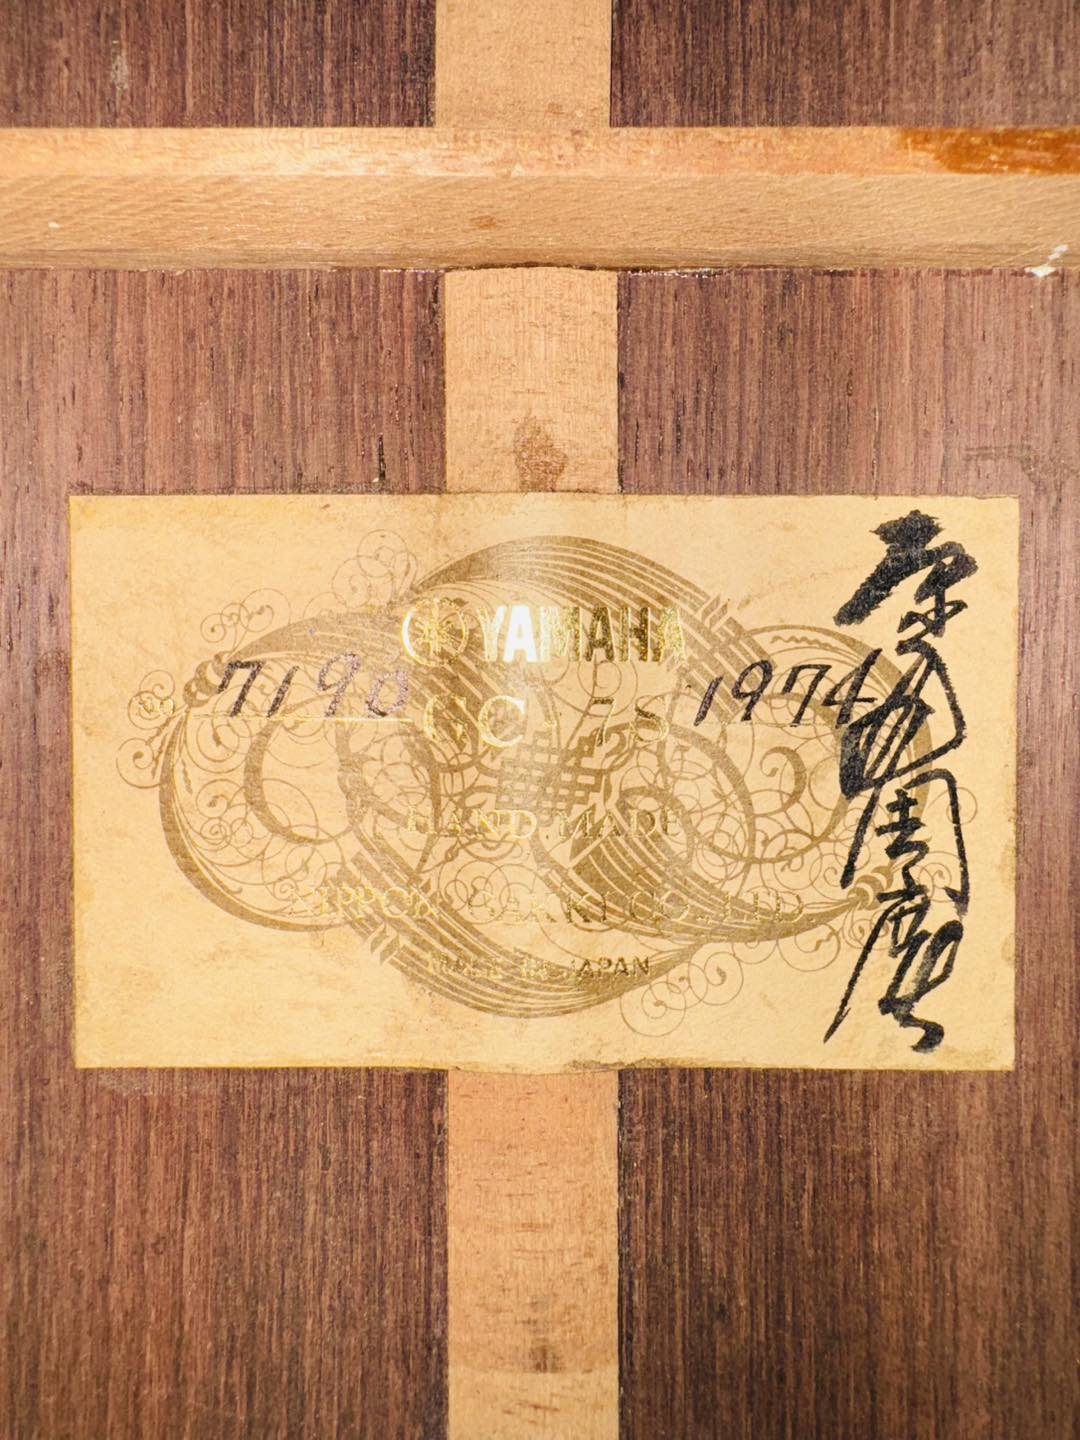 YAMAHA
7190 GC-7S 1974
HAND MADE
NIPPON GAKKI CO., LTD.
MADE IN JAPAN